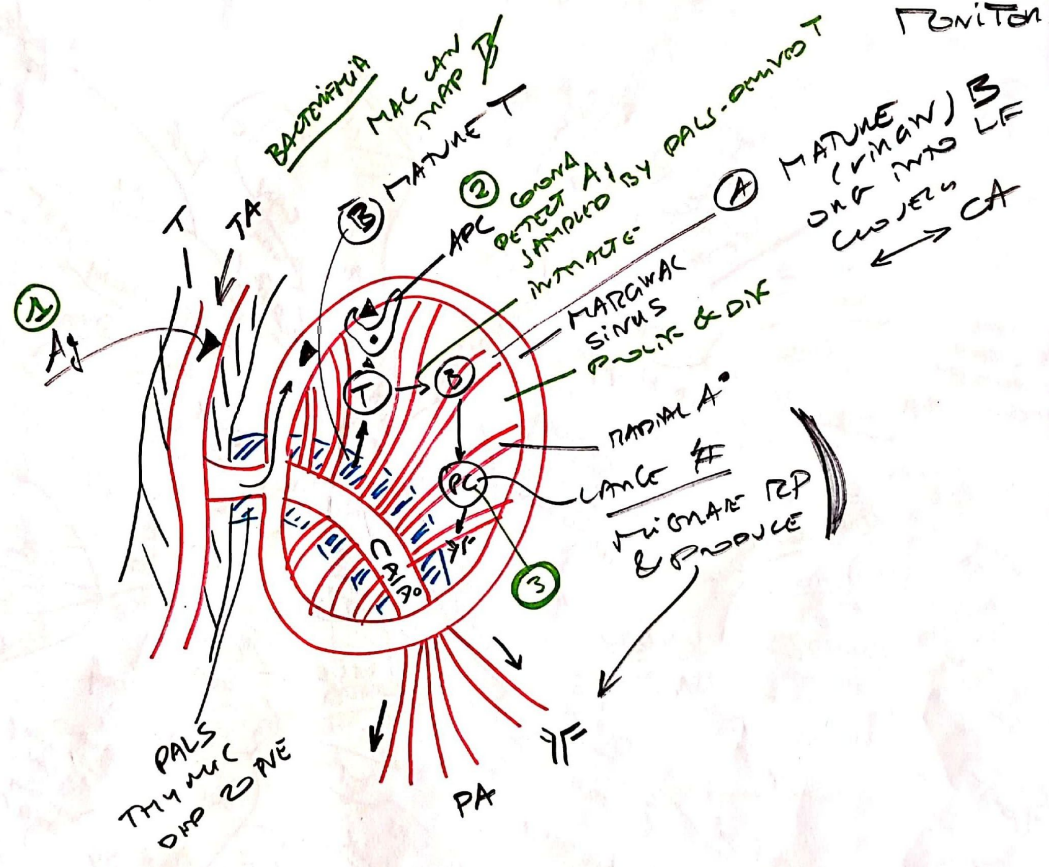 MONITOR
BACTERIEMIA
MAC CAN
TRAP B
B MATURE T
2 CORONA
DETECT Ag
SAMPLED BY PALS-DERIVED T
INTERACTE
APC
A
MATURE
(VIRGIN) B
ORG INTO LF
CA
T
TA
1
Ag
MARGINAL
SINUS
PROLIF & DIF
T
B
RADIAL A
LARGE #
MIGRATE RP
& PRODUCE
PC
3
CA
PALS
THYMIC
DEP ZONE
PA